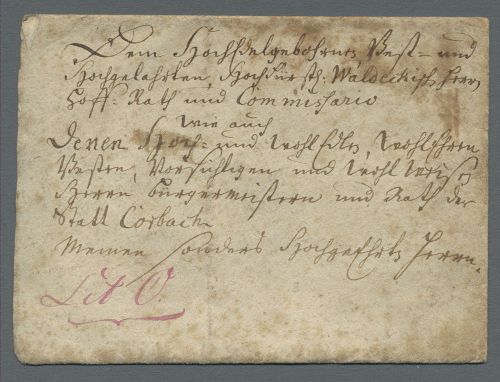 Dem HochEdelgebohrnen Vest- und
Hochgelahrten, Hochfürstl: Waldeckisch: Herrn
Hoff: Rath und Commissario
wie auch
Denen Hoch- und WohlEdlen, WohlEhren
Vesten, Vorsichtigen und WohlWeisen
Herrn Bürgermeistern und Rath der
Statt Corbach
Meinen sonders HochgeEhrten Herrn.
Lit O.